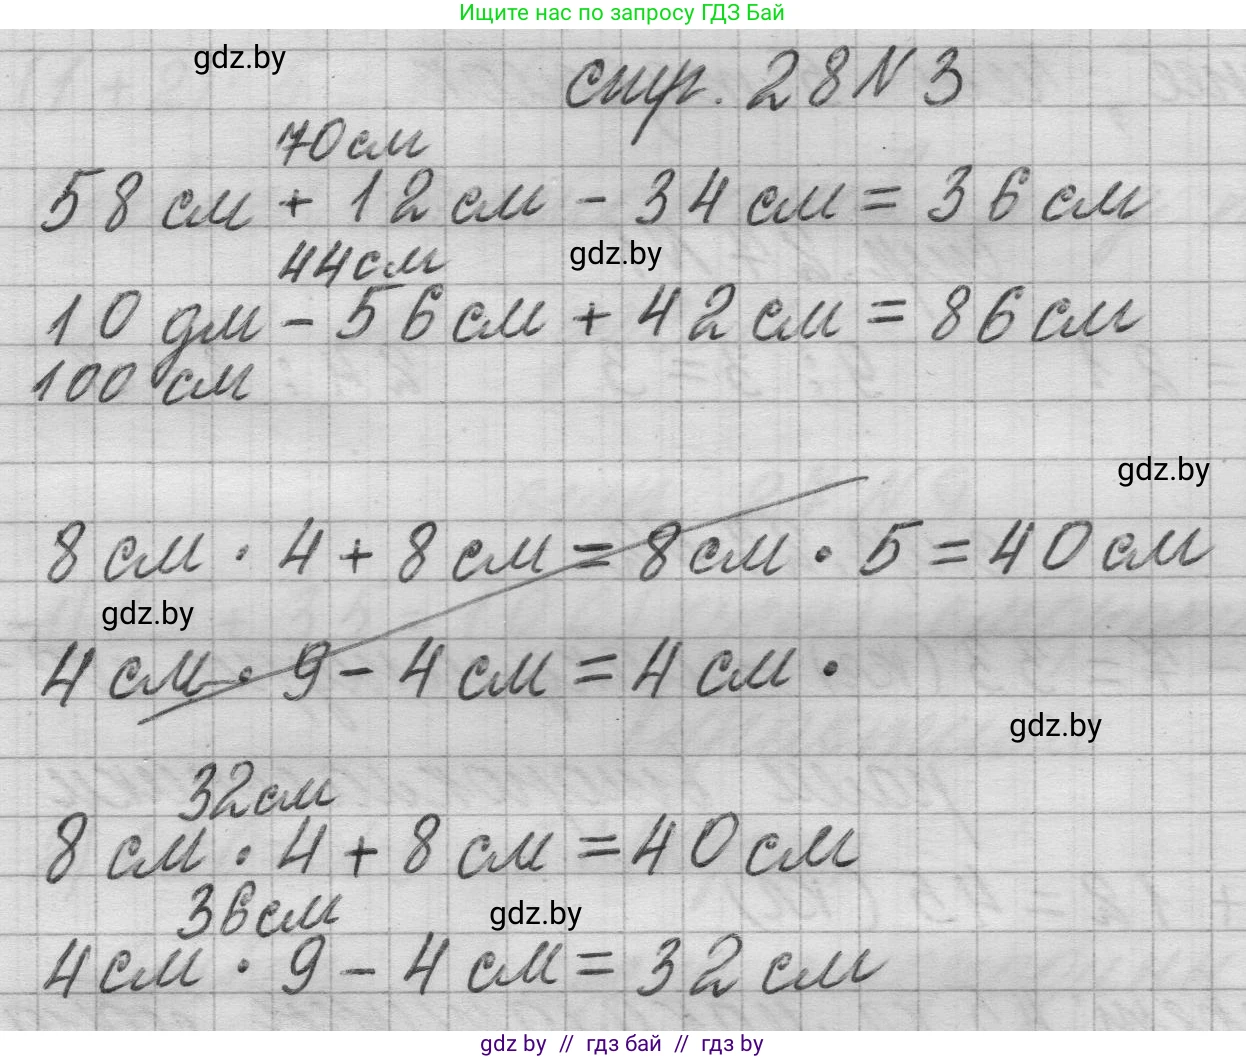 Ищите нас по запросу ГДЗ Бай
gdz.by
стр. 28 N 3
70 см
58 см + 12 см - 34 см = 36 см
44 см
gdz.by
10 дм - 56 см + 42 см = 86 см
100 см
gdz.by
8 см · 4 + 8 см = 8 см · 5 = 40 см
gdz.by
4 см · 9 - 4 см = 4 см ·
gdz.by
32 см
8 см · 4 + 8 см = 40 см
36 см
gdz.by
4 см · 9 - 4 см = 32 см
gdz by // гдз бай // гдз by